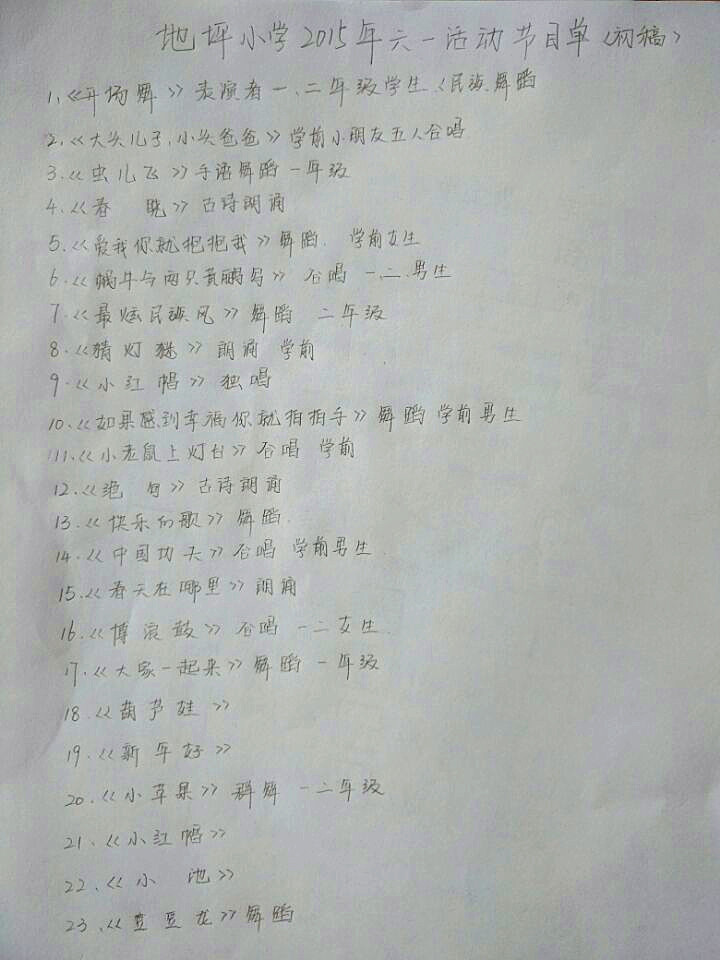 地坪小学2015年六一活动节目单(初稿)
1、《开场舞》表演者一、二年级学生《民族舞蹈
2、《大头儿子,小头爸爸》学前小朋友五人合唱
3、《虫儿飞》手语舞蹈 一年级
4、《春 晓》古诗朗诵
5、《爱我你就抱抱我》舞蹈. 学前女生
6、《蜗牛与两只黄鹂鸟》合唱 一.二.男生
7、《最炫民族风》舞蹈 二年级
8、《猜灯谜》朗诵 学前
9、《小红帽》独唱
10、《如果感到幸福你就拍拍手》舞蹈 学前男生
11、《小老鼠上灯台》合唱 学前
12、《绝 句》古诗朗诵
13、《快乐的歌》舞蹈.
14、《中国功夫》合唱 学前男生.
15、《春天在哪里》朗诵
16、《博浪鼓》合唱 一二女生.
17、《大家一起来》舞蹈 一年级
18、《葫芦娃》
19、《新年好》
20、《小苹果》群舞 一二年级
21、《小红帽》
22、《小 池》
23、《豆豆龙》舞蹈